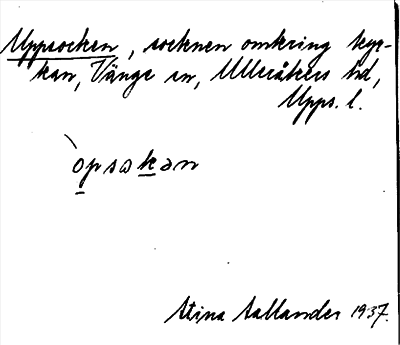 Uppsocken, socknen omkring kyr-
kan, Vänge sn, Ulleråkers hd,
Upps. l.
`opsokən
Stina Aallander 1937.